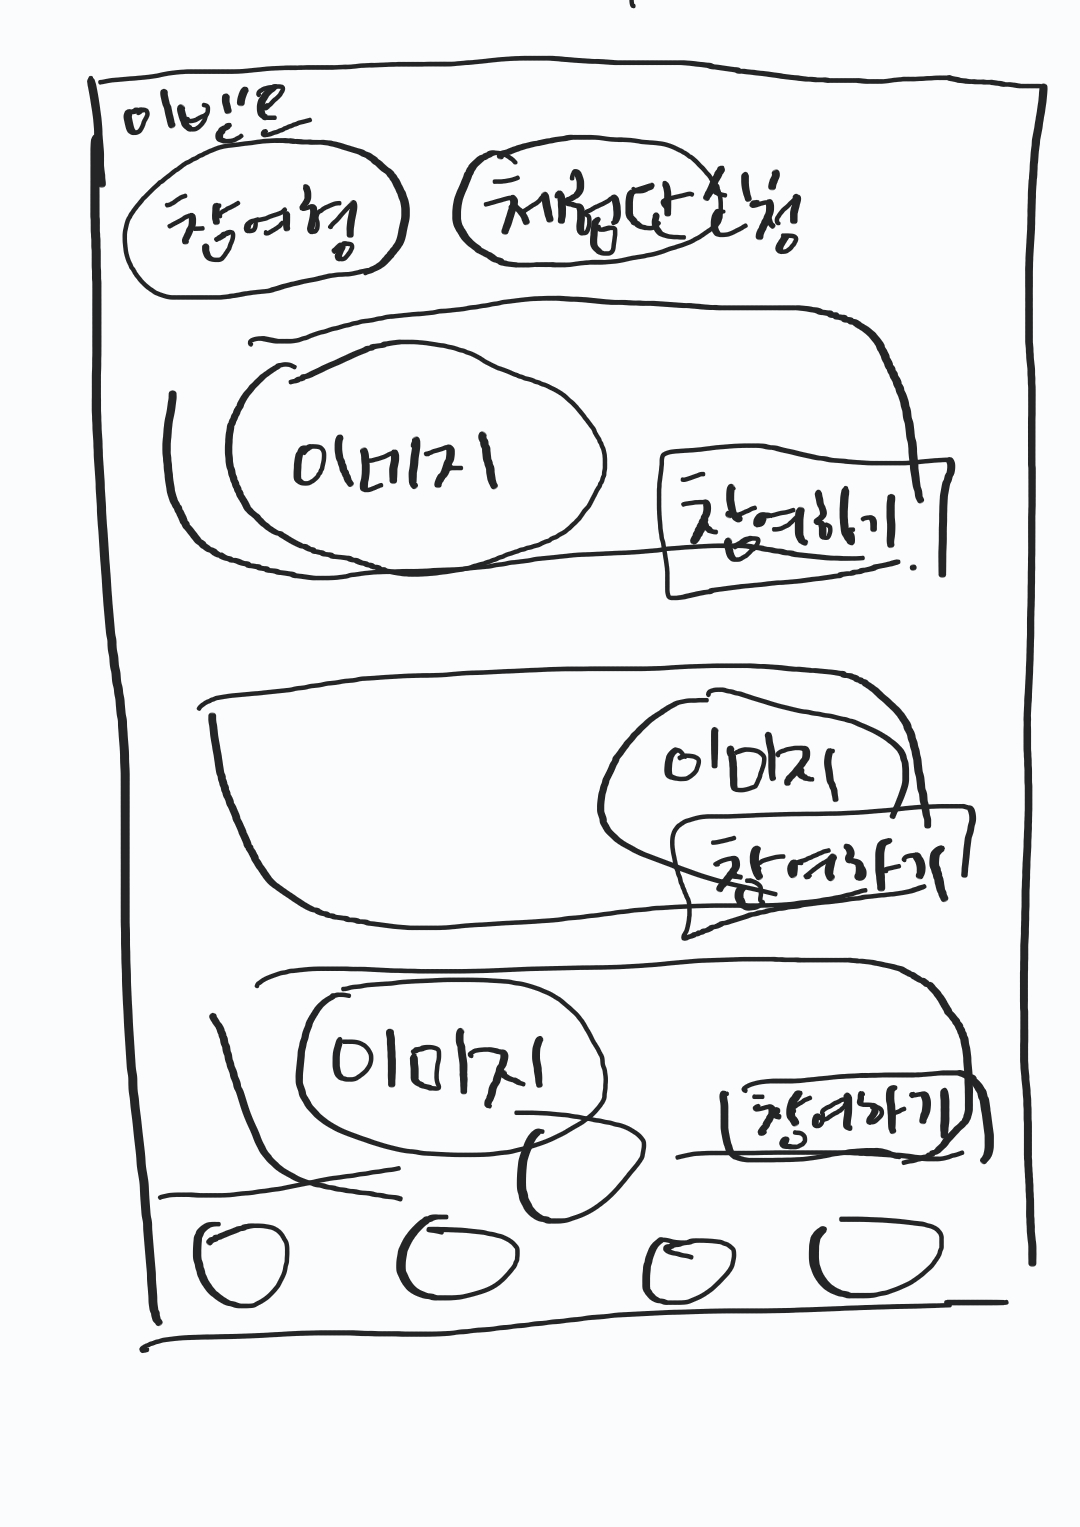 이벤트
참여형
체험단 신청
이미지
참여하기
이미지
참여하기
이미지
참여하기